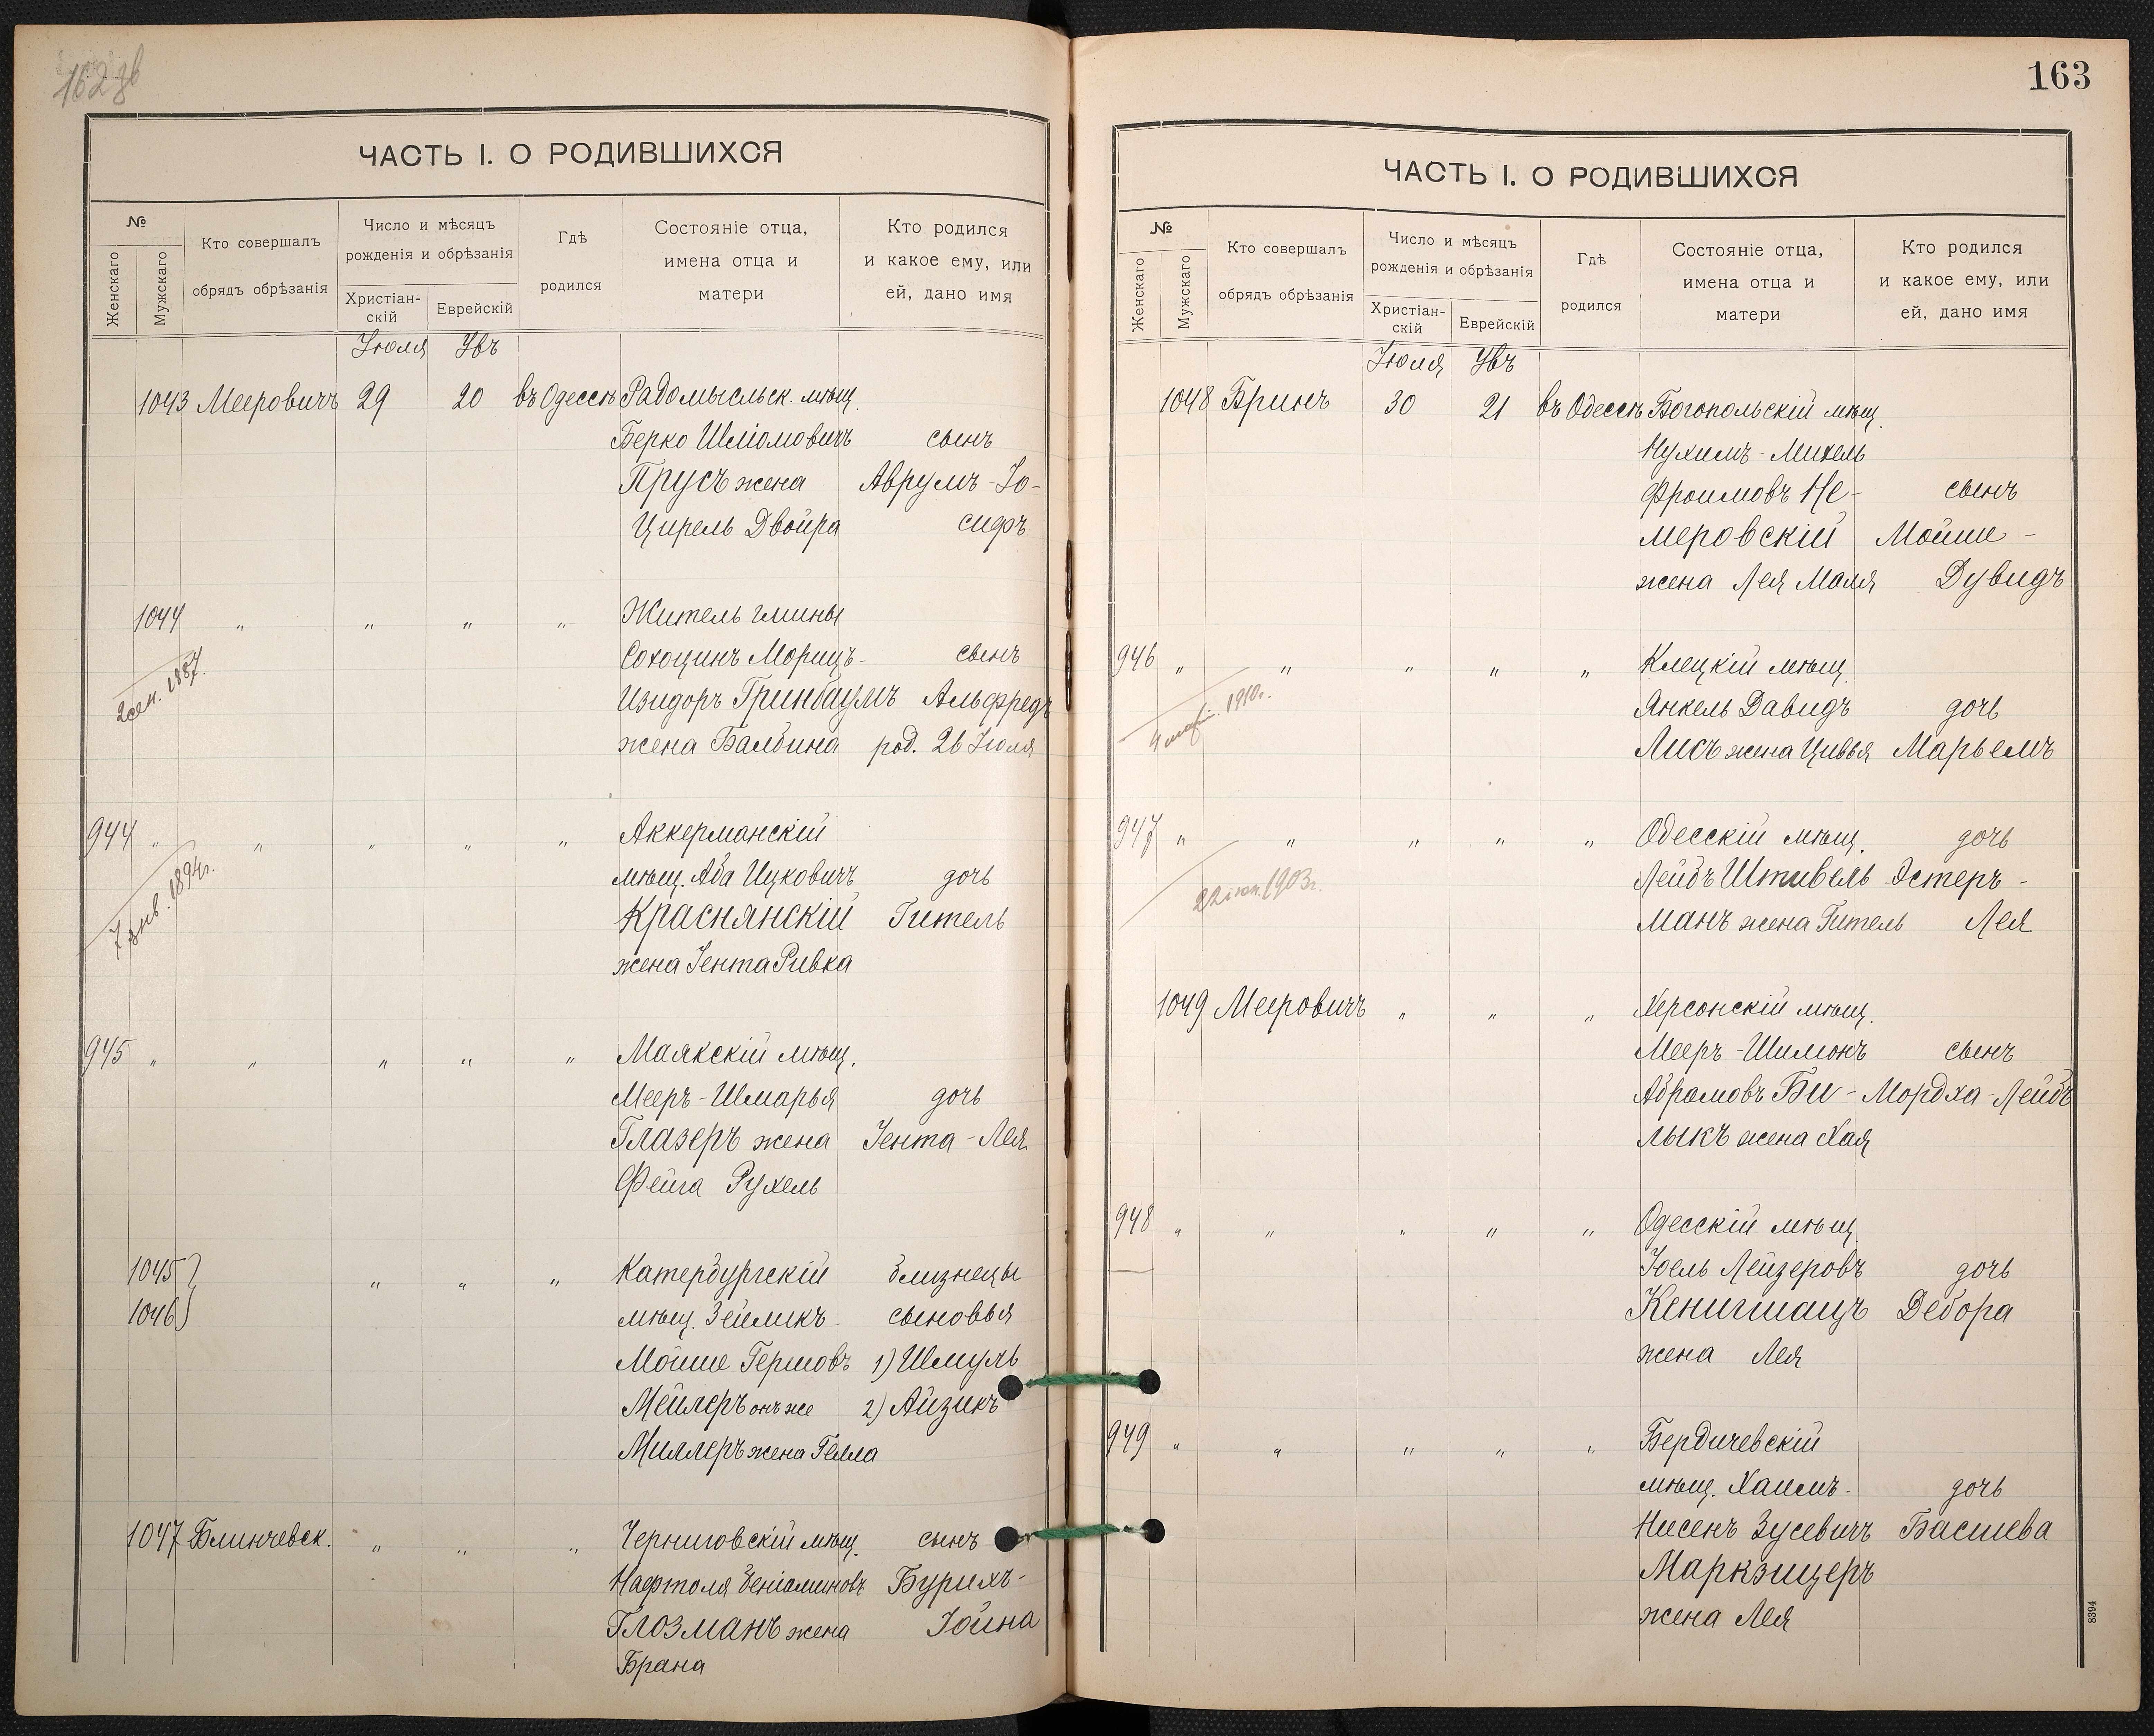 162 зв
ЧАСТЬ I. О РОДИВШИХСЯ
№
Женскаго
Мужскаго
Кто совершалъ
обрядъ обрѣзанія
Число и мѣсяцъ
рожденія и обрѣзанія
Христіан-
скій
Еврейскій
Гдѣ
родился
Состояніе отца,
имена отца и
матери
Кто родился
и какое ему, или
ей, дано имя
Июля Увъ
1043 Мееровичъ 29 20 въ Одессѣ Радомысльск. мѣщ.
Берко Шліомовичъ сынъ
Прусъ жена Аврумъ-Іо-
Цирель Двойра сифъ
1044 " " " " Житель гмины
Сохоцинъ Морицъ- сынъ
2 сен. 1887.
Изидоръ Гринбаумъ Альфредъ
жена Бальбина род. 26 Іюля
944 " " " " " Аккерманскій
мѣщ. Аба Ицковичъ дочь
7 янв. 1894г.
Краснянскій Гитель
жена Іента Ривка
945 " " " " " Маякскій мѣщ.
Мееръ-Шмарья дочь
Глазеръ жена Іента-Лея
Фейга Рухель
1045 " " " Катербургскій близнецы
1046 мѣщ. Зейликъ- сыновья
Мойше Гершовъ 1) Шмуль
Мейлеръ онъ же 2) Айзикъ
Миллеръ жена Гелла
1047 Блинчевск. " " " Черниговскій мѣщ. сынъ
Нафтоля Беніаминовъ Бурихъ-
Глозманъ жена Іойна
Брана
163
ЧАСТЬ I. О РОДИВШИХСЯ
№
Женскаго
Мужскаго
Кто совершалъ
обрядъ обрѣзанія
Число и мѣсяцъ
рожденія и обрѣзанія
Христіан-
скій
Еврейскій
Гдѣ
родился
Состояніе отца,
имена отца и
матери
Кто родился
и какое ему, или
ей, дано имя
Іюля Увъ
1048 Бринъ 30 21 въ Одессѣ Богопольскій мѣщ.
Нухимъ-Михель
Фроимовъ Не- сынъ
меровскій Мойше-
жена Лея Маля Дувидъ
946 " " " " " Клецкій мѣщ.
Янкель Давидъ дочь
1910г.
Лисъ жена Цивья Марьемъ
947 " " " " " Одесскій мѣщ. дочь
Лейбъ Штивель- Эстеръ-
22 1903г.
манъ жена Гитель Лея
1049 Мееровичъ " " " Херсонскій мѣщ.
Мееръ-Шимонъ сынъ
Абрамовъ Би- Мордха-Лейбъ
лыкъ жена Хая
948 " " " " " Одесскій мѣщ.
Іоель Лейзеровъ дочь
Кенигшацъ Дебора
жена Лея
949 " " " " " Бердичевскій
мѣщ. Хаимъ- дочь
Нисенъ Зусевичъ Басшева
Маркзицеръ
жена Лея
8394